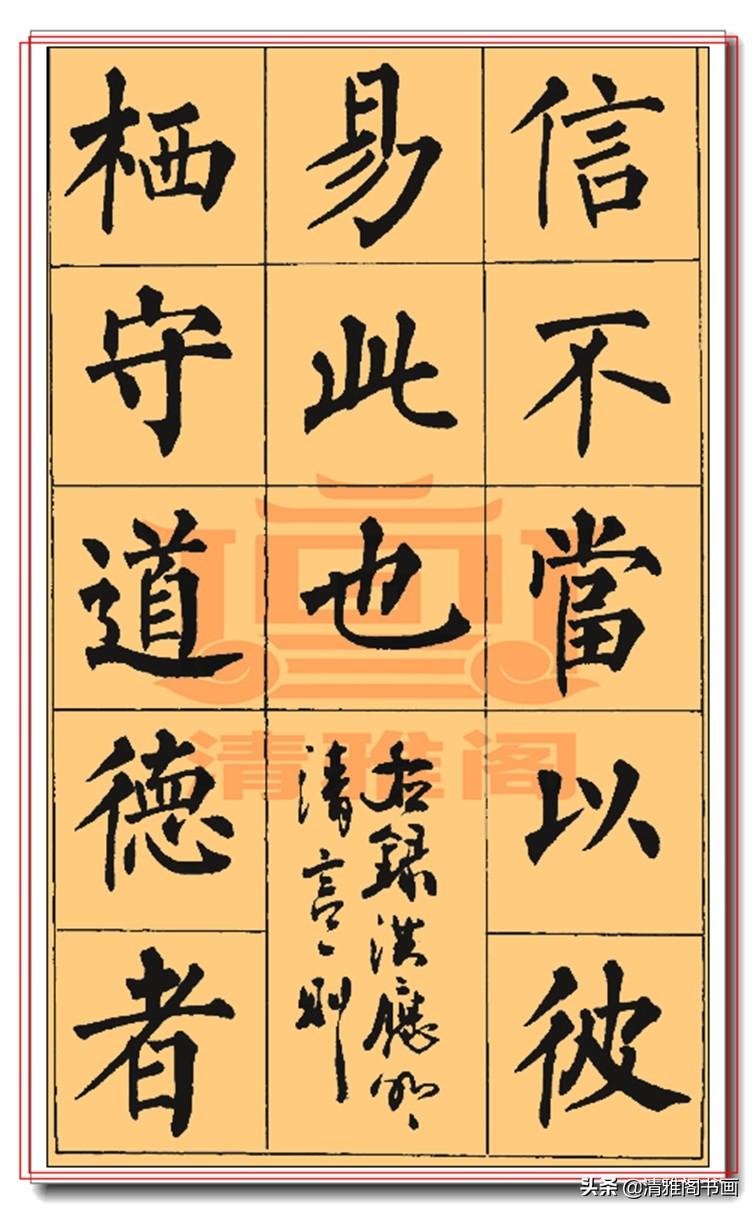 信不當以彼
易此也
右録洪應明
清言一則
栖守道德者
清雅阁
头条 @清雅阁书画